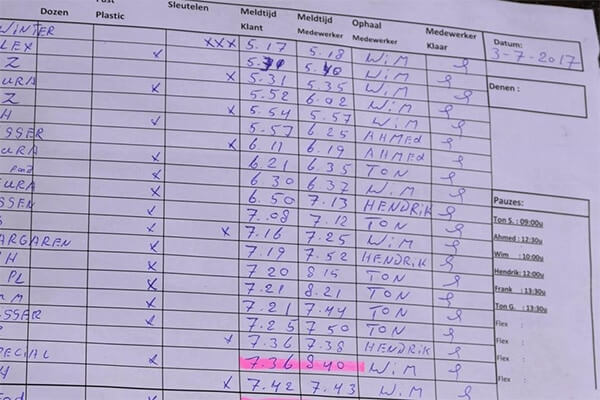 Dozen Post Plastic Sleutelen Meldtijd Klant Meldtijd Medewerker Ophaal Medewerker Medewerker Klaar
Datum: 3-7-2017
Denen :
WINTER xxx 5.17 5.18 WiM
LEX x
Z x 5.31 5.35 WiM
URA 5.52 6.02 WiM
Z x 5.54 5.57 WiM
H 5.57 6.25 AHMEd
SSER x 6.11 6.19 AHMEd
URA x 6.21 6.35 TON
6.30 6.37 WiM
EURA x 6.50 7.13 HENDRiK
SSEN x 7.08 7.12 TON
x 7.16 7.25 WiM
ARGAREN x 7.19 7.52 HENDRiK
H x 7.20 8.15 TON
PL x 7.21 8.21 TON
M x 7.21 7.44 TON
SSER x 7.25 7.50 TON
x 7.36 7.38 HENDRiK
PECIAL x 7.36 8.40 WiM
H x 7.42 7.43 WiM
Pauzes:
Ton S. : 09:00u
Ahmed : 12:30u
Wim : 10:00u
Hendrik: 12:00u
Frank : 13:30u
Ton G. : 13:30u
Flex :
Flex :
Flex :
Flex :